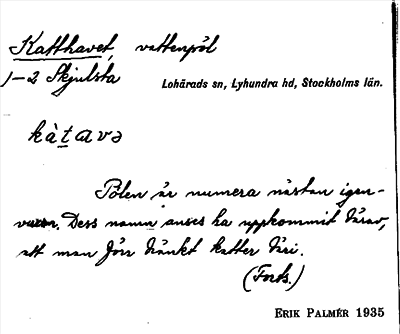 Katthavet, vattenpöl
1-2 Skjulsta
Lohärads sn, Lyhundra hd, Stockholms län.
kàtavə
Pölen är numera nästan igen-
vuxen. Dess namn anses ha uppkommit därav,
att man förr dränkt katter däri.
(Forts.)
ERIK PALMÉR 1935